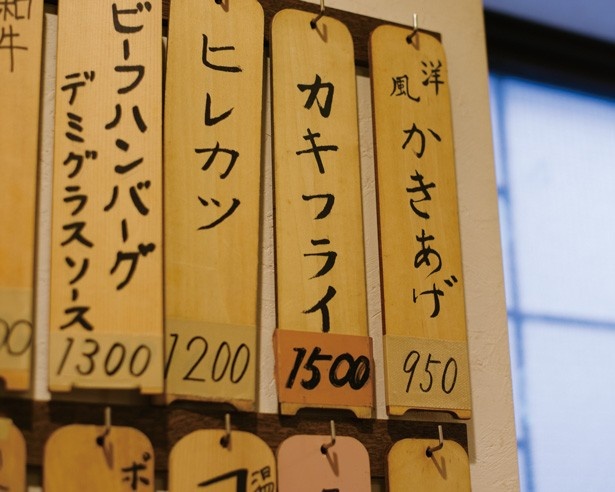 洋風
かきあげ
950
カキフライ
1500
ヒレカツ
1200
ビーフハンバーグ
デミグラスソース
1300
和牛
00
ポ